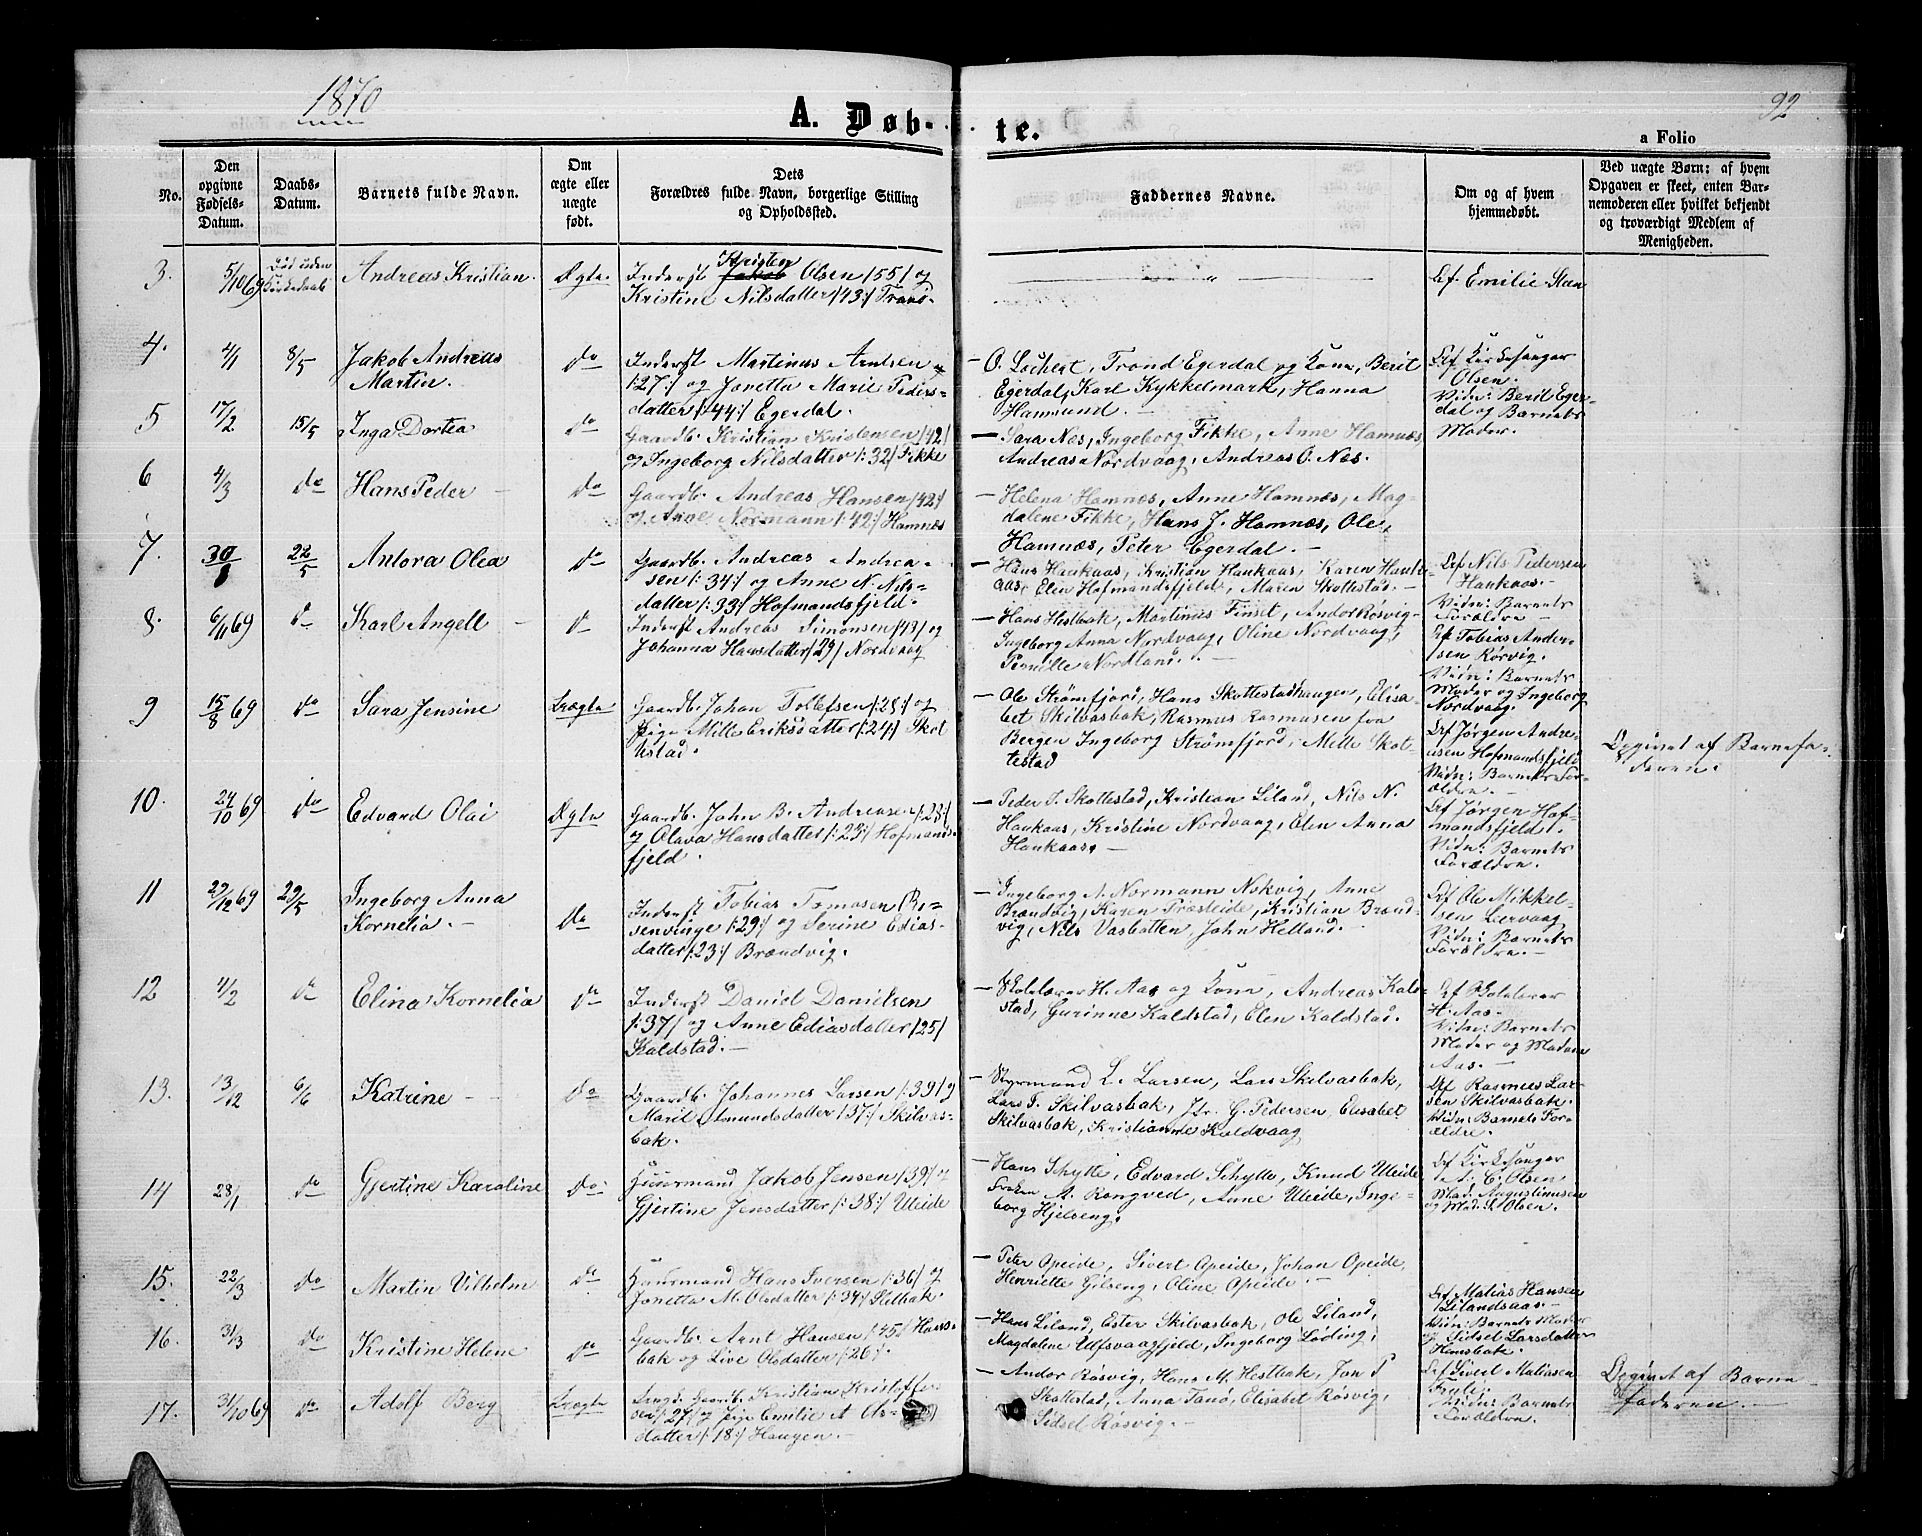 1870
A. Døb-
te.
92
a Folio
No.
Den
opgivne
Fødsels-
Datum.
Daabs-
Datum.
Barnets fulde Navn.
Om
ægte eller
uægte
født.
Dets
Forældres fulde Navn, borgerlige Stilling
og Opholdssted.
Faddernes Navne.
Om og af hvem
hjemmedøbt.
Ved uægte Børn: af hvem
Opgaven er skeet, enten Bar-
nemoderen eller hvilket bekjendt
og troværdigt Medlem af
Menigheden.
3.
5/10 69
Død uden
Kirkedaab
Andreas Kristian.
Ægte
Kristen
Inderst Jakob Olsen /55/ og
Kristine Nilsdatter /43:/ Tranø.
Af Emilie Steen
4.
4/1
8/5
Jakob Andreas
Martin.
do
Inderst Martinus Arntsen
/:27:/ og Jonetta Marie Peders-
datter /:44:/ Egerdal.
- O. Lochert, Trond Egerdal og Kone, Berit
Egerdal, Karl Kykkelmark, Hanna
Hamsund.
Af Kirkesanger
Olsen.
Vidn: Berit Eger-
dal og Barnets
Moder.
5
17/2
15/5
Inga Dortea
do
Gaardb. Kristian Kristensen /42/
og Ingeborg Nilsdatter /:32/ Fikke
- Sara Nes, Ingeborg Fikke, Anne Hamnæs,
Andreas Nordvaag, Andreas O. Nes.
6
4/3
do
Hans Peder
do
Gaardb. Andreas Hansen /42:/
og Anne Normann /:42:/ Hamnæs
- Helena Hamnæs, Anne Hamnæs, Mag-
dalene Fikke, Hans J. Hamnæs, Ole
Hamnæs, Peter Egerdal.
7.
30/1
22/5
Antora Olea
do
Gaardb. Andreas Andrea-
sen /:34:/ og Anne N. Nils-
datter /:33:/ Hofmandsfjeld.
- Hans Haukaas, Kristian Haukaas, Karen Hauk-
aas, Elen Hofmandsfjeld, Maren Skottestad.
Af Nils Pedersen
Haukaas.
Vidn: Barnets
Forældre
8.
6/11 69
do
Karl Angell
do
Inderst Andreas Simonsen /43/ og
Johanna Hansdatter /29/ Nordvaag
- Hans Hestbak, Martinus Finset, Andor Røsvig
Ingeborg Anna Nordvaag, Oline Nordvaag,
Pernille Nordland.
Af Tobias Ander-
sen Rørvig.
Vidn: Barnets
Moder og Ingeborg
Nordvaag.
9
15/8 69
do
Sara Jensine
Uægte
Gaardb. Johan Tollefsen /:25:/ og
Pige Mille Eriksdatter /:24/ Skot
testad.
- Ole Strømfjord, Hans Skottestadhaugen, Elisa-
bet Skilvasbak, Rasmus Rasmusen fra
Bergen Ingeborg Strømfjord, Mille Skot-
testad
Af Jørgen Andre-
asen Hofmandsfjeld
Vidn: Barnets For-
ældre.
Opgivet af Barnefa-
deren.
10.
24/10 69
do
Edvard Olai
Ægte
Gaardb. John B. Andreasen /:23:/
og Olava Hansdatter /:23:/ Hofmands-
fjeld.
- Peder J. Skottestad, Kristian Liland, Nils N.
Haukaas, Kristine Nordvaag, Elen Anna
Haukaas.
Af Jørgen Hof-
mandsfjeld.
Vidn: Barnets
Forældre.
11
29/12 69
29/5
Ingeborg Anna
Kornelia.
do
Inderst Tobias Tomasen Ro-
senvinge /:29:/ og Serine Edias-
datter /:23:/ Brændvig.
- Ingeborg A. Normann Nokvig, Anne
Brændvig, Karen Præsteide, Kristian Brænd-
vig, Nils Vasbotten, John Helland.
Af Ole Mikkel-
sen Lervaag
Vidn: Barnets
Forældre.
12
4/2
do
Elina Kornelia
do
Inderst Daniel Danielsen
/:37/ og Anne Ediasdatter /25/
Kaldstad.
- Skolelærer H. Aas og Kone, Andreas Kald-
stad, Gurinne Kaldstad, Elen Kaldstad.
Af Skolelærer
H. Aas.
Vidn: Barnets
Moder og Madam
Aas.
13.
13/12
6/6
Katrine
do
Gaardb. Johannes Larsen /:39/ og
Marit Amundsdatter /37:/ Skilvas-
bak.
- Styrmand L. Larsen, Lars Skilvasbak,
Lars T. Skilvasbak, Jfr. G. Pedersen, Elisabet
Skilvasbak, Kristianne Kaldvaag
Af Rasmus Lar-
sen Skilvasbak.
Vidn: Barnets For-
ældre.
14
28/1
do
Gjertine Karoline
do
Huusmand Jakob Jensen /39/ og
Gjertine Jensdatter /:38:/ Uleide
- Hans Schytte, Edvard Schytte, Knud Uleide
Frøken A. Rongved, Anne Uleide, Inge-
borg Hjelseng.
Af Kirkesanger
A. C. Olsen
Mad. Augustinusen
og Mad. S. Olsen.
15.
22/3
do
Martin Vilhelm
do
Huusmand Hans Iversen /:36/ og
Jonetta M. Olsdatter /:34:/ Stelbak.
- Peter Opeide, Sivert Opeide, Johan Opeide,
Henriette Gilseng, Oline Opeide.
Af Matias Hansen
Lilandsaas.
Vidn: Barnets Moder
og Sidsel Larsdatter
16.
31/3
do
Kristine Helene
do
Gaardb. Arnt Hansen /:45/ Hans-
bak og Live Olsdatter /:26/.
- Hans Liland, Ester Skilvasbak, Ole Liland,
Magdalene Ulfsvaagfjeld, Ingeborg Løding,
17.
31/10 69
do
Adolf Berg
Uægte
Kristian Kristoffer-
sen /:27/ og Pige Emilie A. Ols-
datter /:18:/ Haugen.
- Andor Røsvig, Hans M. Hestbak, Jon P
Skottestad, Anna Tanø, Elisabet Røsvig,
Sidsel Røsvig.
Af Sivert Matiasen
Vidn: Barnets
Forældre
Opgivet af Barne-
faderen.